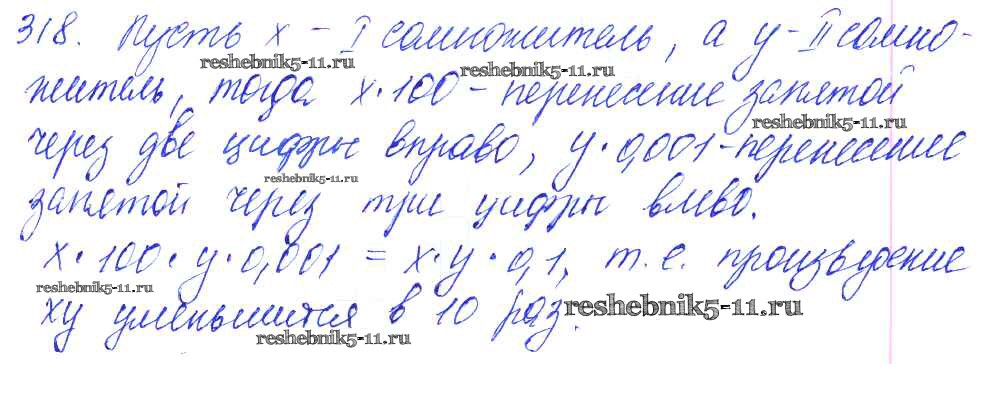 318. Пусть x - I сомножитель, а y - II сомно-
reshebnik5-11.ru
reshebnik5-11.ru
житель, тогда x · 100 - перенесение запятой
reshebnik5-11.ru
через две цифры вправо, y · 0,001 - перенесение
reshebnik5-11.ru
запятой через три цифры влево.
x · 100 · y · 0,001 = x · y · 0,1, т. е. произведение
reshebnik5-11.ru
xy уменьшится в 10 раз.
reshebnik5-11.ru
reshebnik5-11.ru